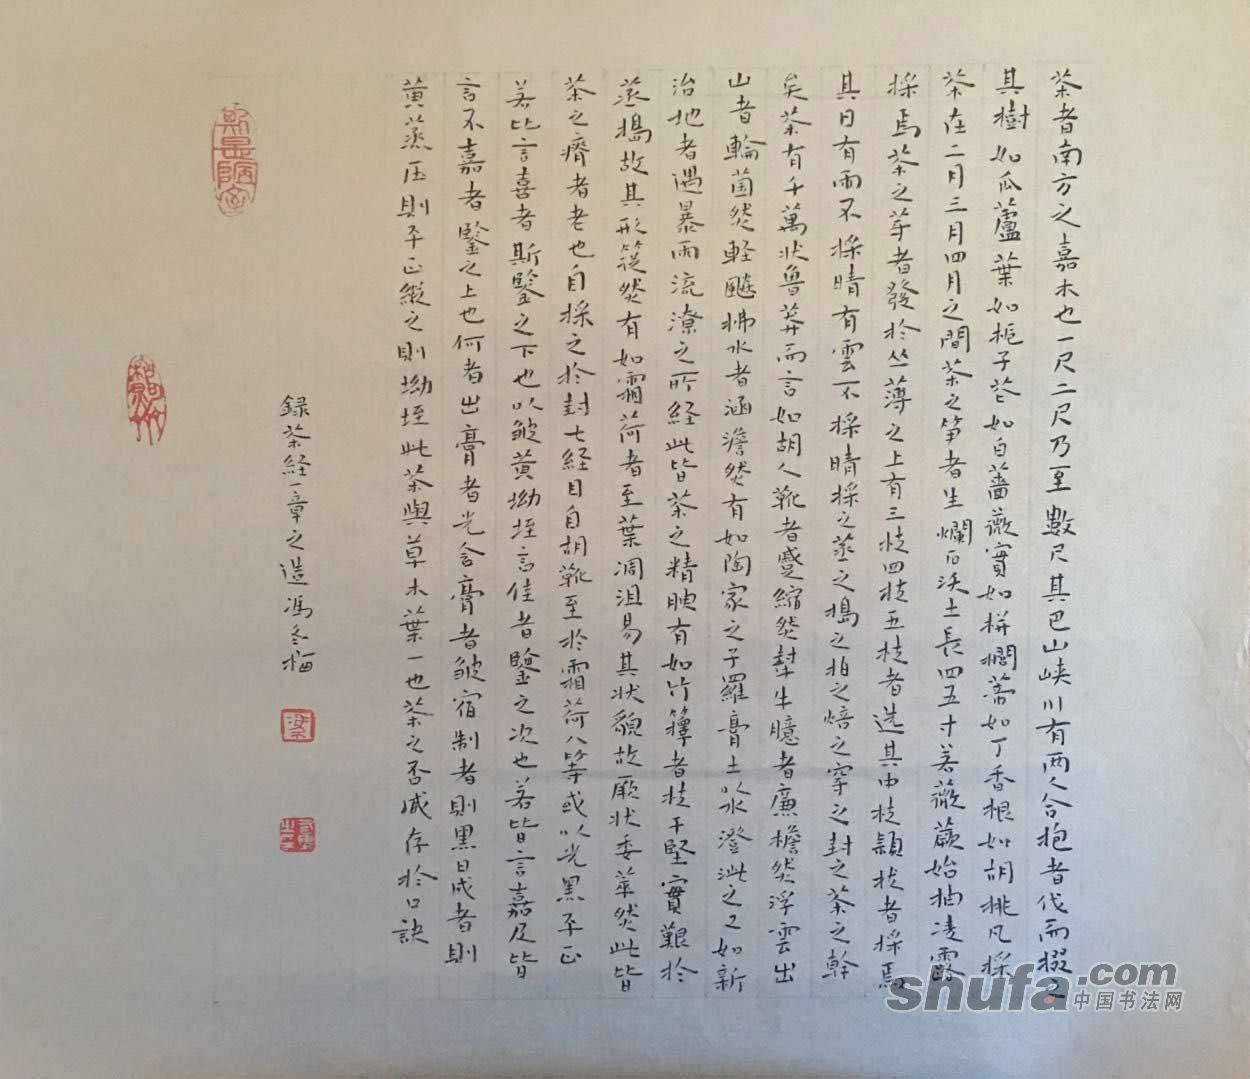 茶者南方之嘉木也一尺二尺乃至數尺其巴山峡川有两人合抱者伐而掇之
其樹如瓜蘆葉如栀子花如白薔薇實如栟櫚蒂如丁香根如胡桃凡採
茶在二月三月四月之間茶之笋者生爛石沃土長四五寸若薇蕨始抽凌露
採焉茶之芽者發於丛薄之上有三枝四枝五枝者选其中枝穎拔者採焉
其日有雨不採晴有雲不採晴採之蒸之搗之拍之焙之穿之封之茶之幹
矣茶有千萬状鲁莽而言如胡人靴者蹙縮然犎牛臆者廉襜然浮雲出
山者輪菌然軽飈拂水者涵澹然有如陶家之子羅膏土以水澄泚之又如新
治地者遇暴雨流潦之所経此皆茶之精腴有如竹籜者枝干堅實艱於
蒸搗故其形簁然有如霜荷者至葉凋沮易其状貌故厥状委萃然此皆
茶之瘠者老也自採之於封七経目自胡靴至於霜荷八等或以光黑平正
若比言喜者斯鑒之下也以皱黄坳垤言佳者鑒之次也若皆言嘉及皆
言不嘉者鑒之上也何者出膏者光含膏者皱宿制者則黑日成者則
黄蒸压則平正縱之則坳垤此茶與草木葉一也茶之否臧存於口訣
録茶経一章之造馮冬梅
斯是陋室
shufa.com
中国书法网